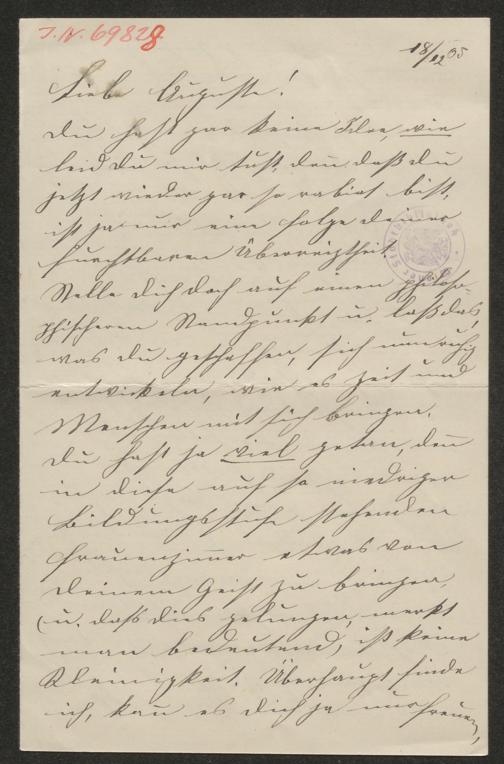 J.N. 69828
18/12 05
Liebe Auguste!
Du hast gar keine Idee, wie
leid du mir tust, denn daß du
jetzt wieder gar so rabiat bist,
ist ja nur eine Folge deiner
furchtbaren Überreiztheit.
Stelle dich doch auf einen philoso-
phischeren Standpunkt u. laß das,
was du geschaffen, sich nun ruhig
entwickeln, wie es Zeit und
Menschen mit sich bringen.
Du hast ja viel getan, den̄
in diese auf so niedriger
Bildungsstufe stehenden
Frauenzim̄er etwas von
deinem Geist zu bringen,
(u. daß dies gelungen, merkt
man bedeutend, ist keine
Kleinigkeit. Überhaupt finde
ich, kan̄ es dich ja nur freuen,